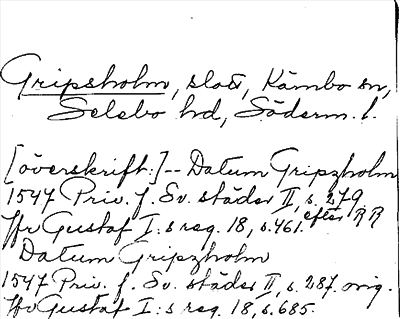 Gripsholm, slott, Kärnbo sn,
Selebo hd, Söderm. l.
[överskrift:]-- Datum Gripzholm
1547 Priv. f. Sv. städer II, s. 279 efter RR
Jfr Gustaf I:s reg. 18, s. 461.
Datum Gripzholm
1547 Priv. f. Sv. städer II, s. 287. orig.
Jfr Gustaf I:s reg. 18, s. 685.